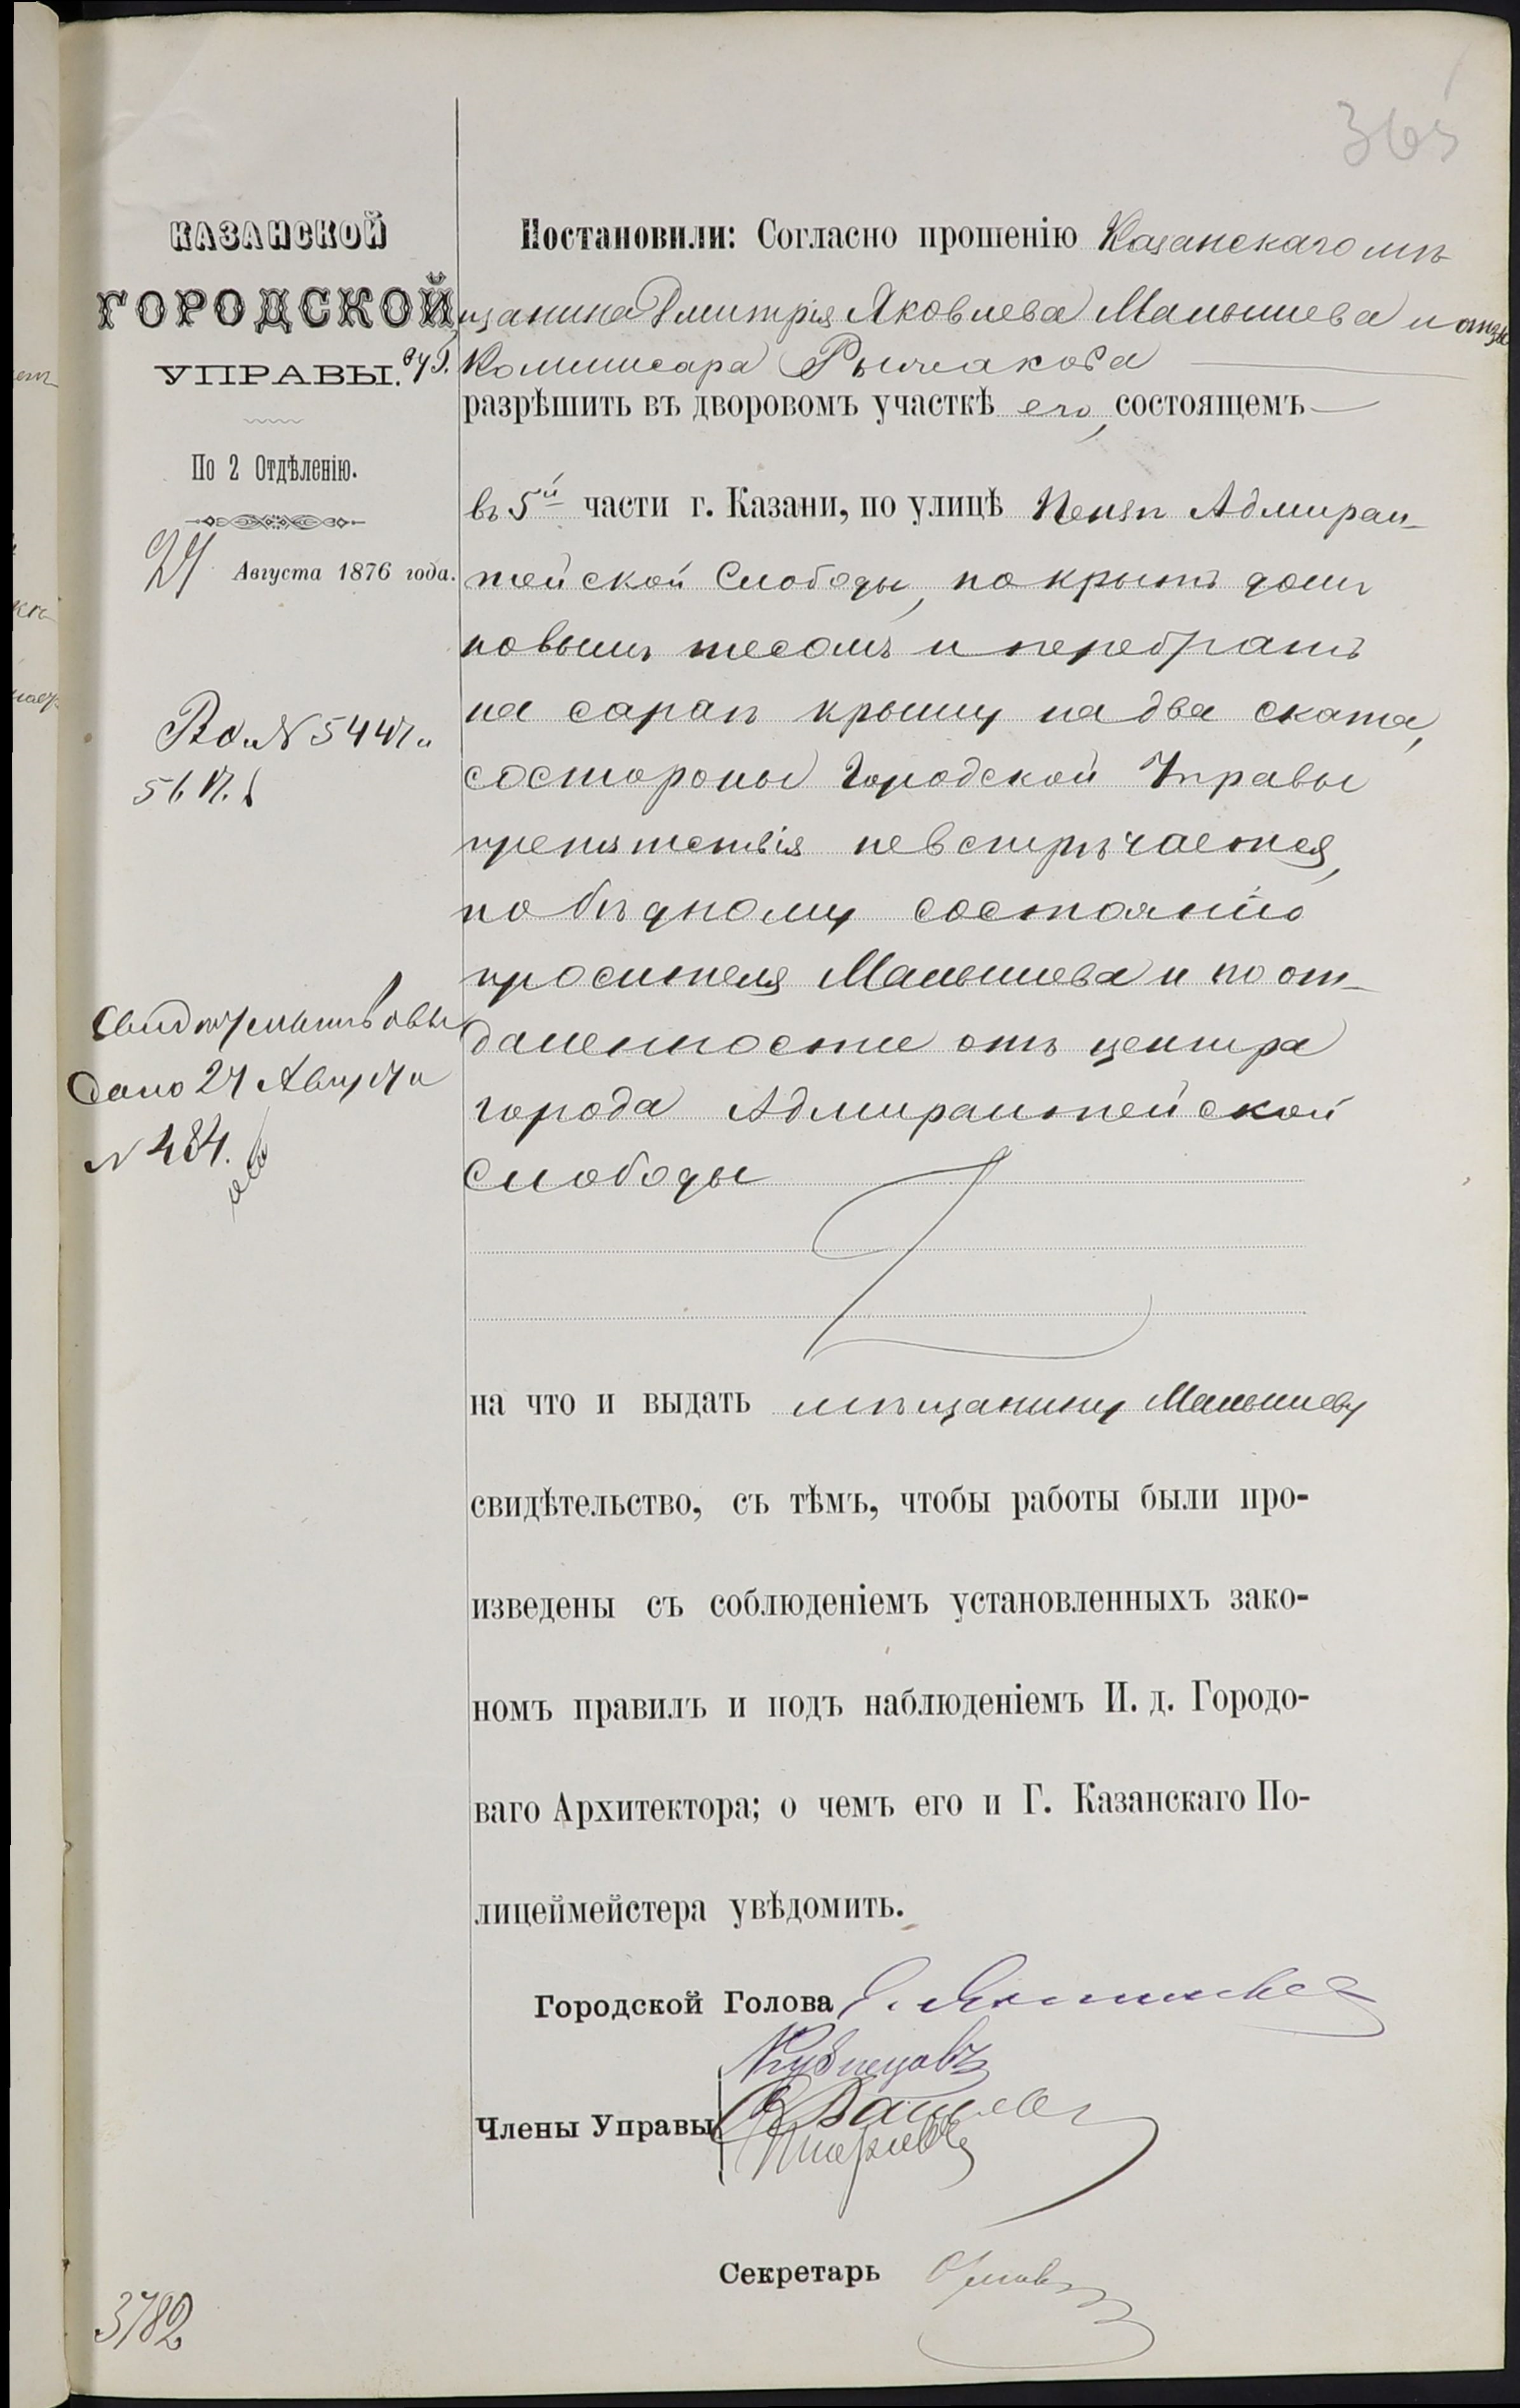 365
КАЗАНСКОЙ
ГОРОДСКОЙ
УПРАВЫ.
По 2 Отдѣленію.
27 Августа 1876 года.
Вх. № 5447 и
5617.
Свидѣтельство
дано 27 Августа
№ 484.
3782
Постановили: Согласно прошенію Казанскаго мѣ
щанина Дмитрія Яковлева Малышева и отзы
ву Г. Коммисара Рычлакова
разрѣшить въ дворовомъ участкѣ его, состоящемъ
въ 5й части г. Казани, по улицѣ Адмирал-
тейской Слободы, покрыть домъ
новымъ тесомъ и перебрать
на сараѣ крышу на два ската,
состороны Городской Управы
препятствія невстрѣчается,
по бѣдному состоянію
просителя Малышева и по от-
даленности отъ центра
города Адмиралтейской
Слободы
на что и выдать мѣщанину Малышеву
свидѣтельство, съ тѣмъ, чтобы работы были про-
изведены съ соблюденіемъ установленныхъ зако-
номъ правилъ и подъ наблюденіемъ И. д. Городо-
ваго Архитектора; о чемъ его и Г. Казанскаго По-
лицеймейстера увѣдомить.
Городской Голова
Кузнецовъ
Члены Управы
Секретарь